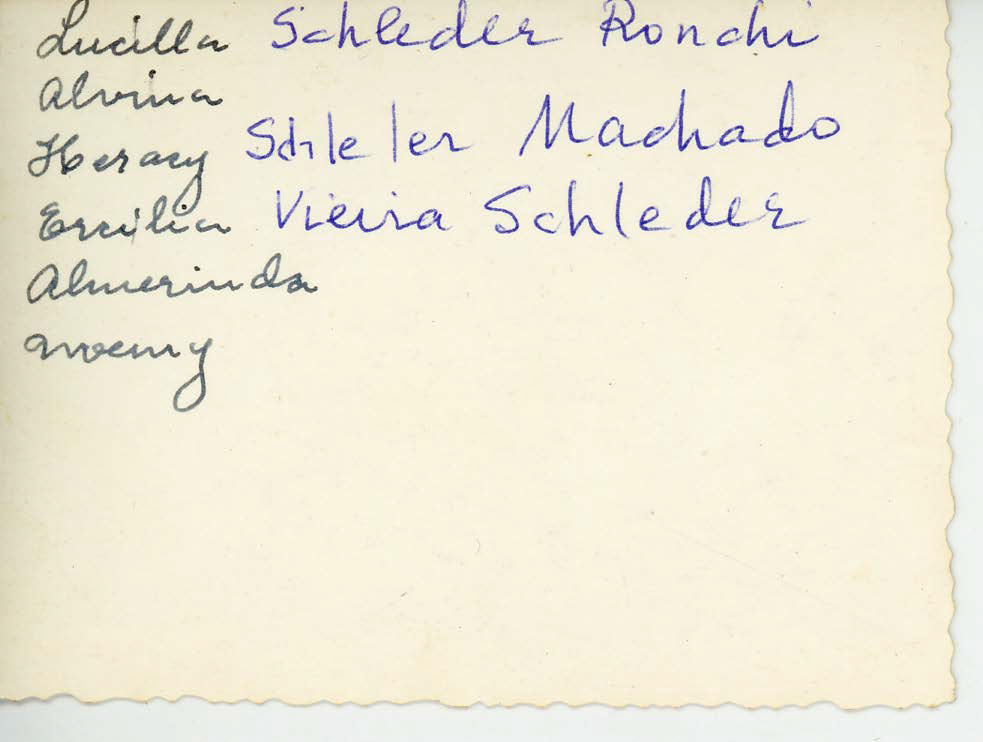 Lucilla Schleder Ronchi
Alvina
Heracy Schleder Machado
Ercilia Vieira Schleder
Almerinda
Noemy